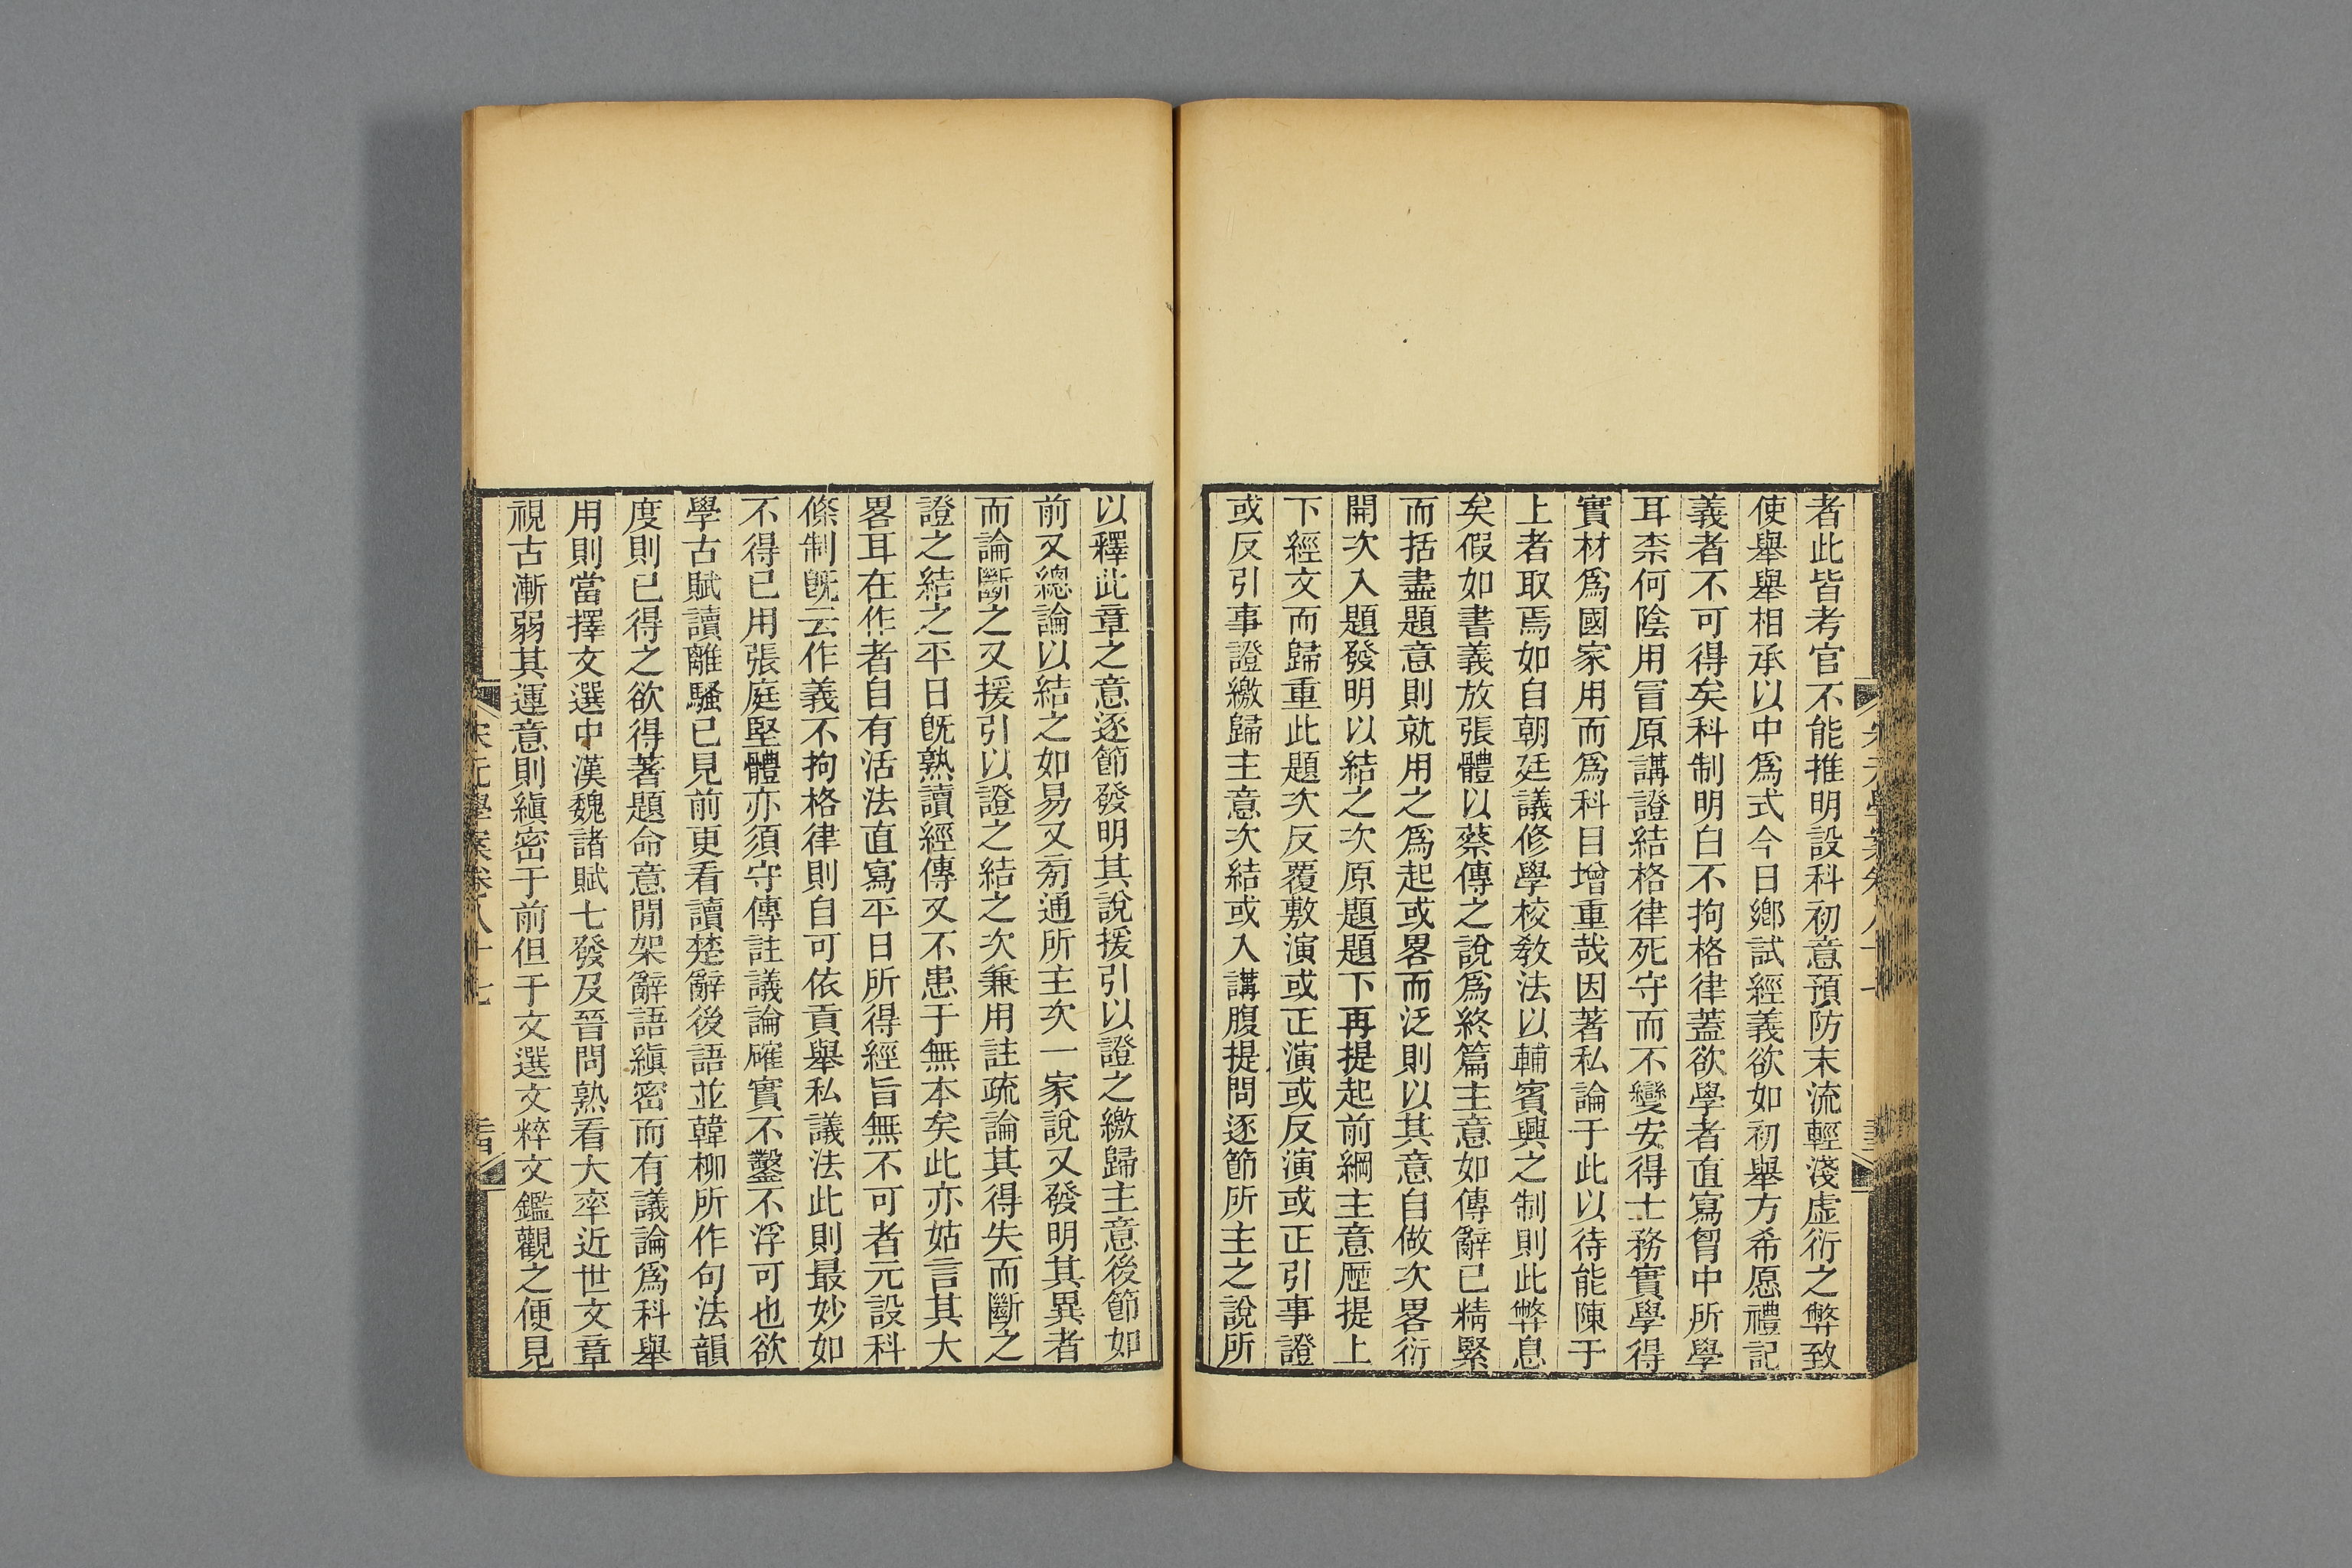 者此皆考官不能推明設科初意預防末流輕淺虛衍之弊致
使舉舉相承以中爲式今日鄉試經義欲如初舉方希愿禮記
義者不可得矣科制明白不拘格律蓋欲學者直寫胷中所學
耳柰何陰用冒原講證結格律死守而不變安得士務實學得
實材爲國家用而爲科目增重哉因著私論于此以待能陳于
上者取焉如自朝廷議修學校教法以輔賓興之制則此弊息
矣假如書義放張體以蔡傳之說爲終篇主意如傳辭已精緊
而括盡題意則就用之爲起或畧而泛則以其意自做次畧衍
開次入題發明以結之次原題題下再提起前綱主意歷提上
下經文而歸重此題次反覆敷演或正演或反演或正引事證
或反引事證繳歸主意次結或入講腹提問逐節所主之說所
以釋此章之意逐節發明其說援引以證之繳歸主意後節如
前又總論以結之如易又旁通所主次一家說又發明其異者
而論斷之又援引以證之結之次兼用註疏論其得失而斷之
證之結之平日旣熟讀經傳又不患于無本矣此亦姑言其大
畧耳在作者自有活法直寫平日所得經旨無不可者元設科
條制旣云作義不拘格律則自可依貢舉私議法此則最妙如
不得已用張庭堅體亦須守傳註議論確實不鑿不浮可也欲
學古賦讀離騷已見前更看讀楚辭後語並韓柳所作句法韻
度則已得之欲得著題命意閒架辭語縝密而有議論爲科舉
用則當擇文選中漢魏諸賦七發及晉問熟看大率近世文章
視古漸弱其運意則縝密于前但于文選文粹文鑑觀之便見
宋元學案卷八十七